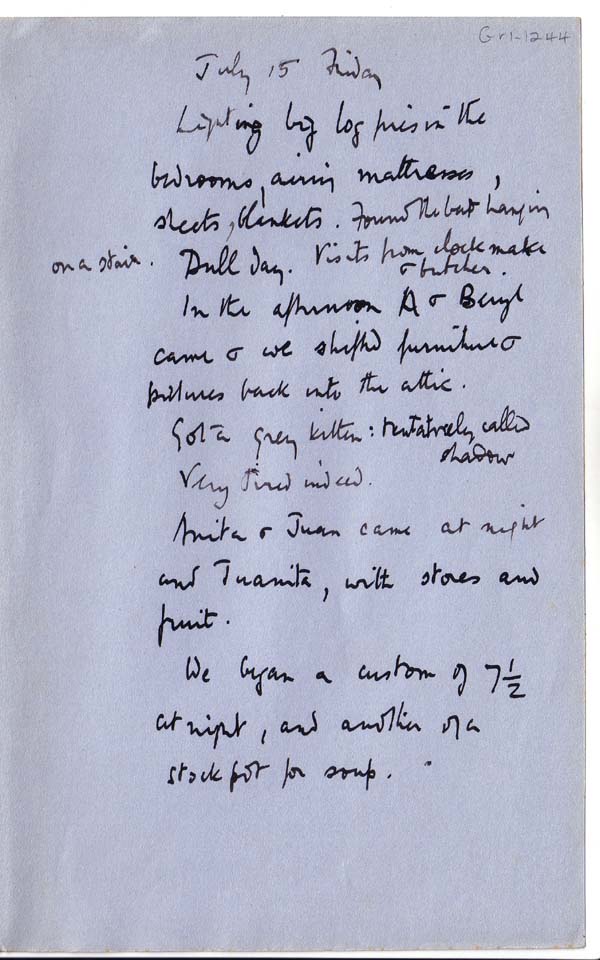 Gr1-1244
July 15 Friday
Lighting big log fires in the
bedrooms, airing mattresses,
sheets, blankets. Found the bat hanging
on a stair. Dull day. Visits from clockmaker
& butcher.
In the afternoon A & Beryl
came & we shifted furniture &
pictures back into the attic.
Got a grey kitten: tentatively called
shadow
Very tired indeed.
Anita & Juan came at night
and Juanita, with stores and
fruit.
We began a custom of 7½
at night, and another of a
stockpot for soup.